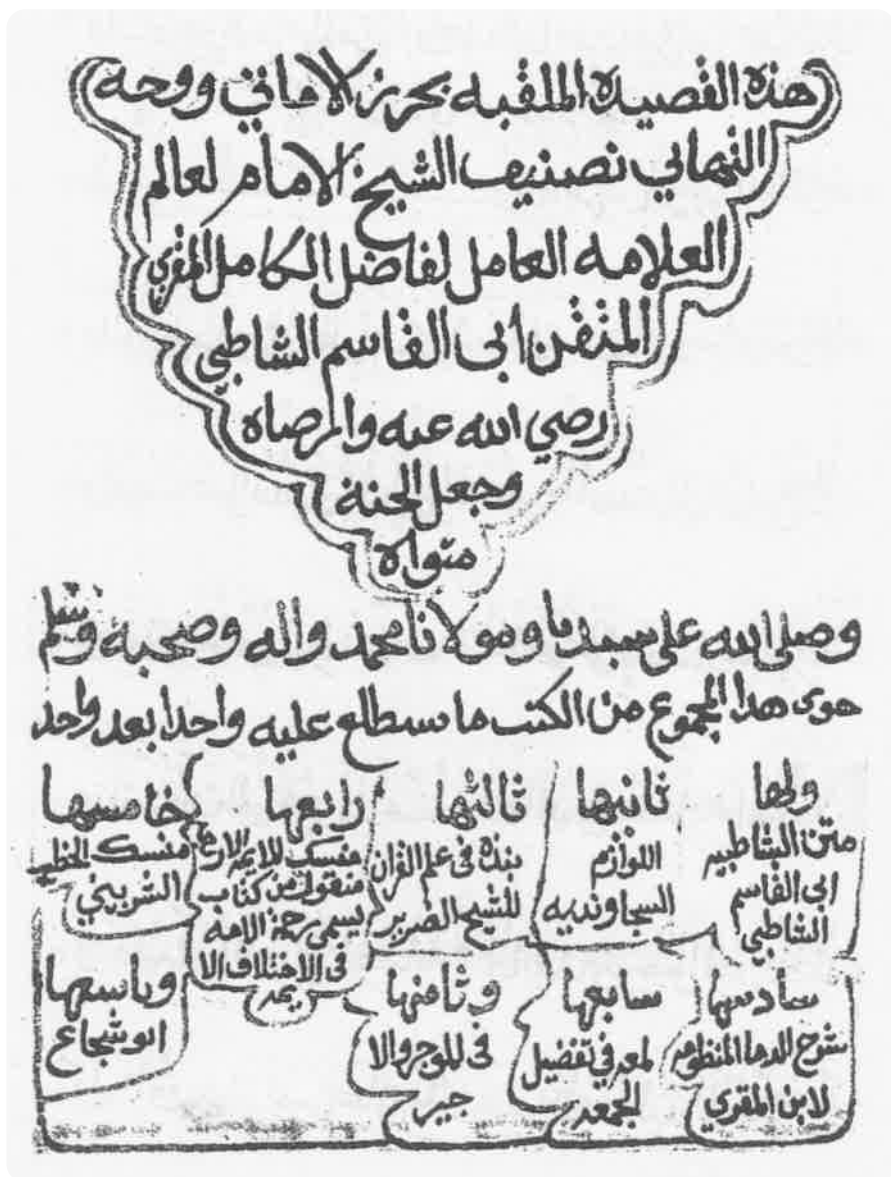 هذه القصيده الملقبه بحرز الاماني ووجه
التهاني تصنيف الشيخ الامام لعالم
العلامه العامل لفاضل الكامل المقري
المتقن ابى القاسم الشاطبي
رضي الله عنه والمرضاه
وجعل الجنة
متواه
وصلى الله على سيدنا ومولانا محمد واله وصحبه وسلم
حوى هذا المجموع من الكتب ما ستطلع عليه واحدا بعد واحد
ولها
متن الشاطبيه
ابى القاسم
الشاطبي
ثانيها
اللوازم
السجاونديه
ثالثها
بنذه فى علم القران
للشيخ الضرير
رابعها
منسك للايمه الاربع
منقول من كتاب
يسمى رحمة الامه
فى الاختلاف الا
يمه
خامسها
منسك الخطيب
الشربيني
سادسها
شرح الدما المنظومه
لابن المقري
سابعها
لمعه في تفضيل
الجمعه
وثامنها
فى للوجر والا
جير
وتاسعها
ابو شجاع